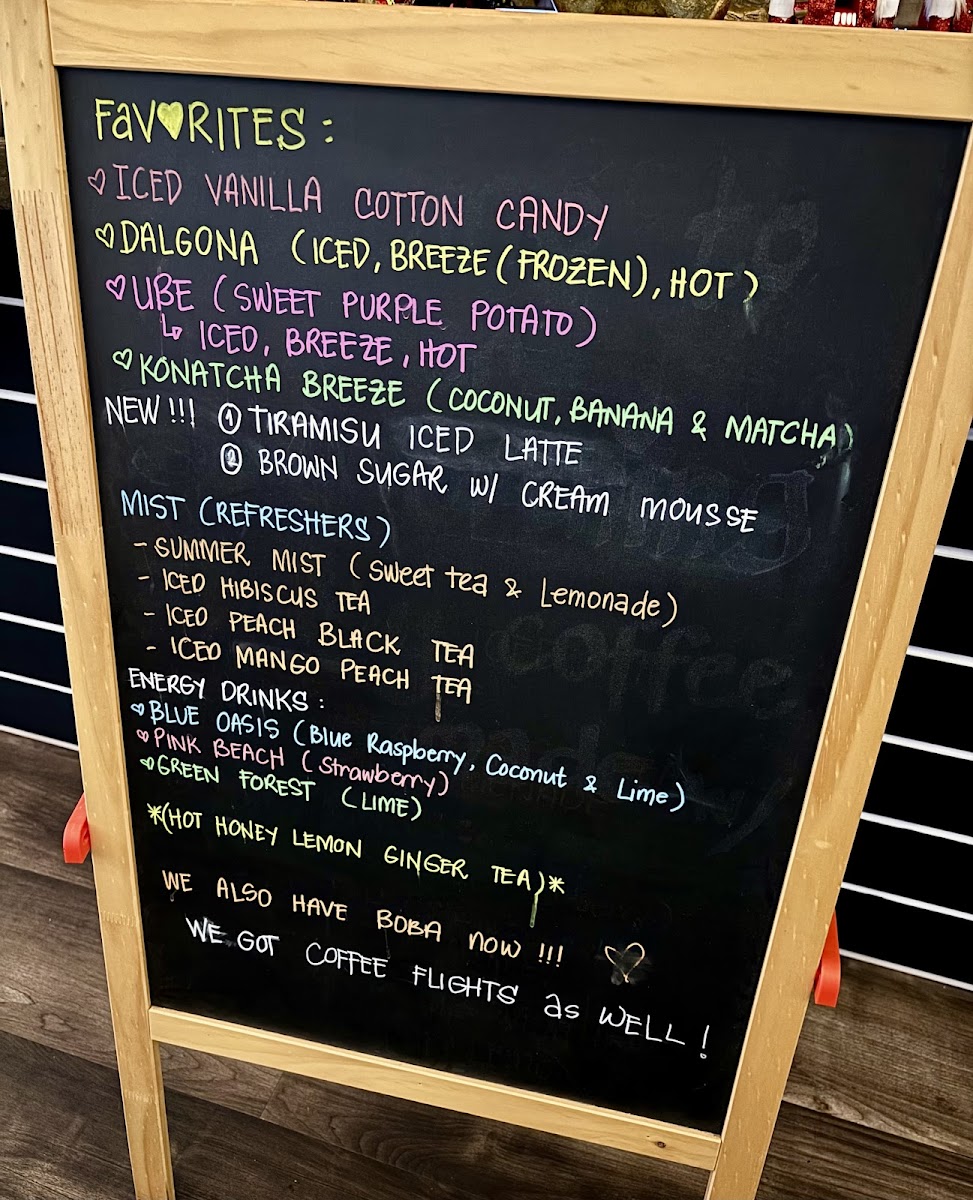 FaV♥RITES :
♡ ICED VANILLA COTTON CANDY
♡ DALGONA (ICED, BREEZE (FROZEN), HOT)
♡ UBE (SWEET PURPLE POTATO)
↳ ICED, BREEZE, HOT
♡ KONATCHA BREEZE (COCONUT, BANANA & MATCHA)
NEW!!! ① TIRAMISU ICED LATTE
② BROWN SUGAR W/ CREAM MOUSSE
MIST (REFRESHERS)
- SUMMER MIST (Sweet tea & Lemonade)
- ICED HIBISCUS TEA
- ICED PEACH BLACK TEA
- ICED MANGO PEACH TEA
ENERGY DRINKS :
♡ BLUE OASIS (Blue Raspberry, Coconut & Lime)
♡ PINK BEACH (Strawberry)
♡ GREEN FOREST (LIME)
*(HOT HONEY LEMON GINGER TEA)*
WE ALSO HAVE BOBA NOW!!! ♡
WE GOT COFFEE FLIGHTS as WELL!